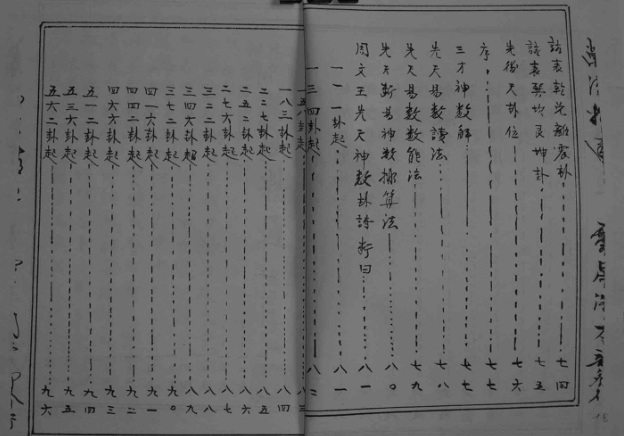 訣表乾兌離震卦 七四
訣表巽坎艮坤卦 七五
先後天卦位 七六
序 七七
三才神數解 七七
先天易數讀法 七八
先天易數數能法 七九
先天新易神數操算法 八〇
周文王先天神數卦詩斷曰 八一
一一一卦起 八一
一三四卦起 八二
一五八卦起 八三
一八三卦起 八四
二二七卦起 八五
二五二卦起 八六
二七六卦起 八七
三二二卦起 八八
三四六卦起 八九
三七二卦起 九〇
四一六卦起 九一
四四二卦起 九二
四六六卦起 九三
五一二卦起 九四
五三六卦起 九五
五六二卦起 九六